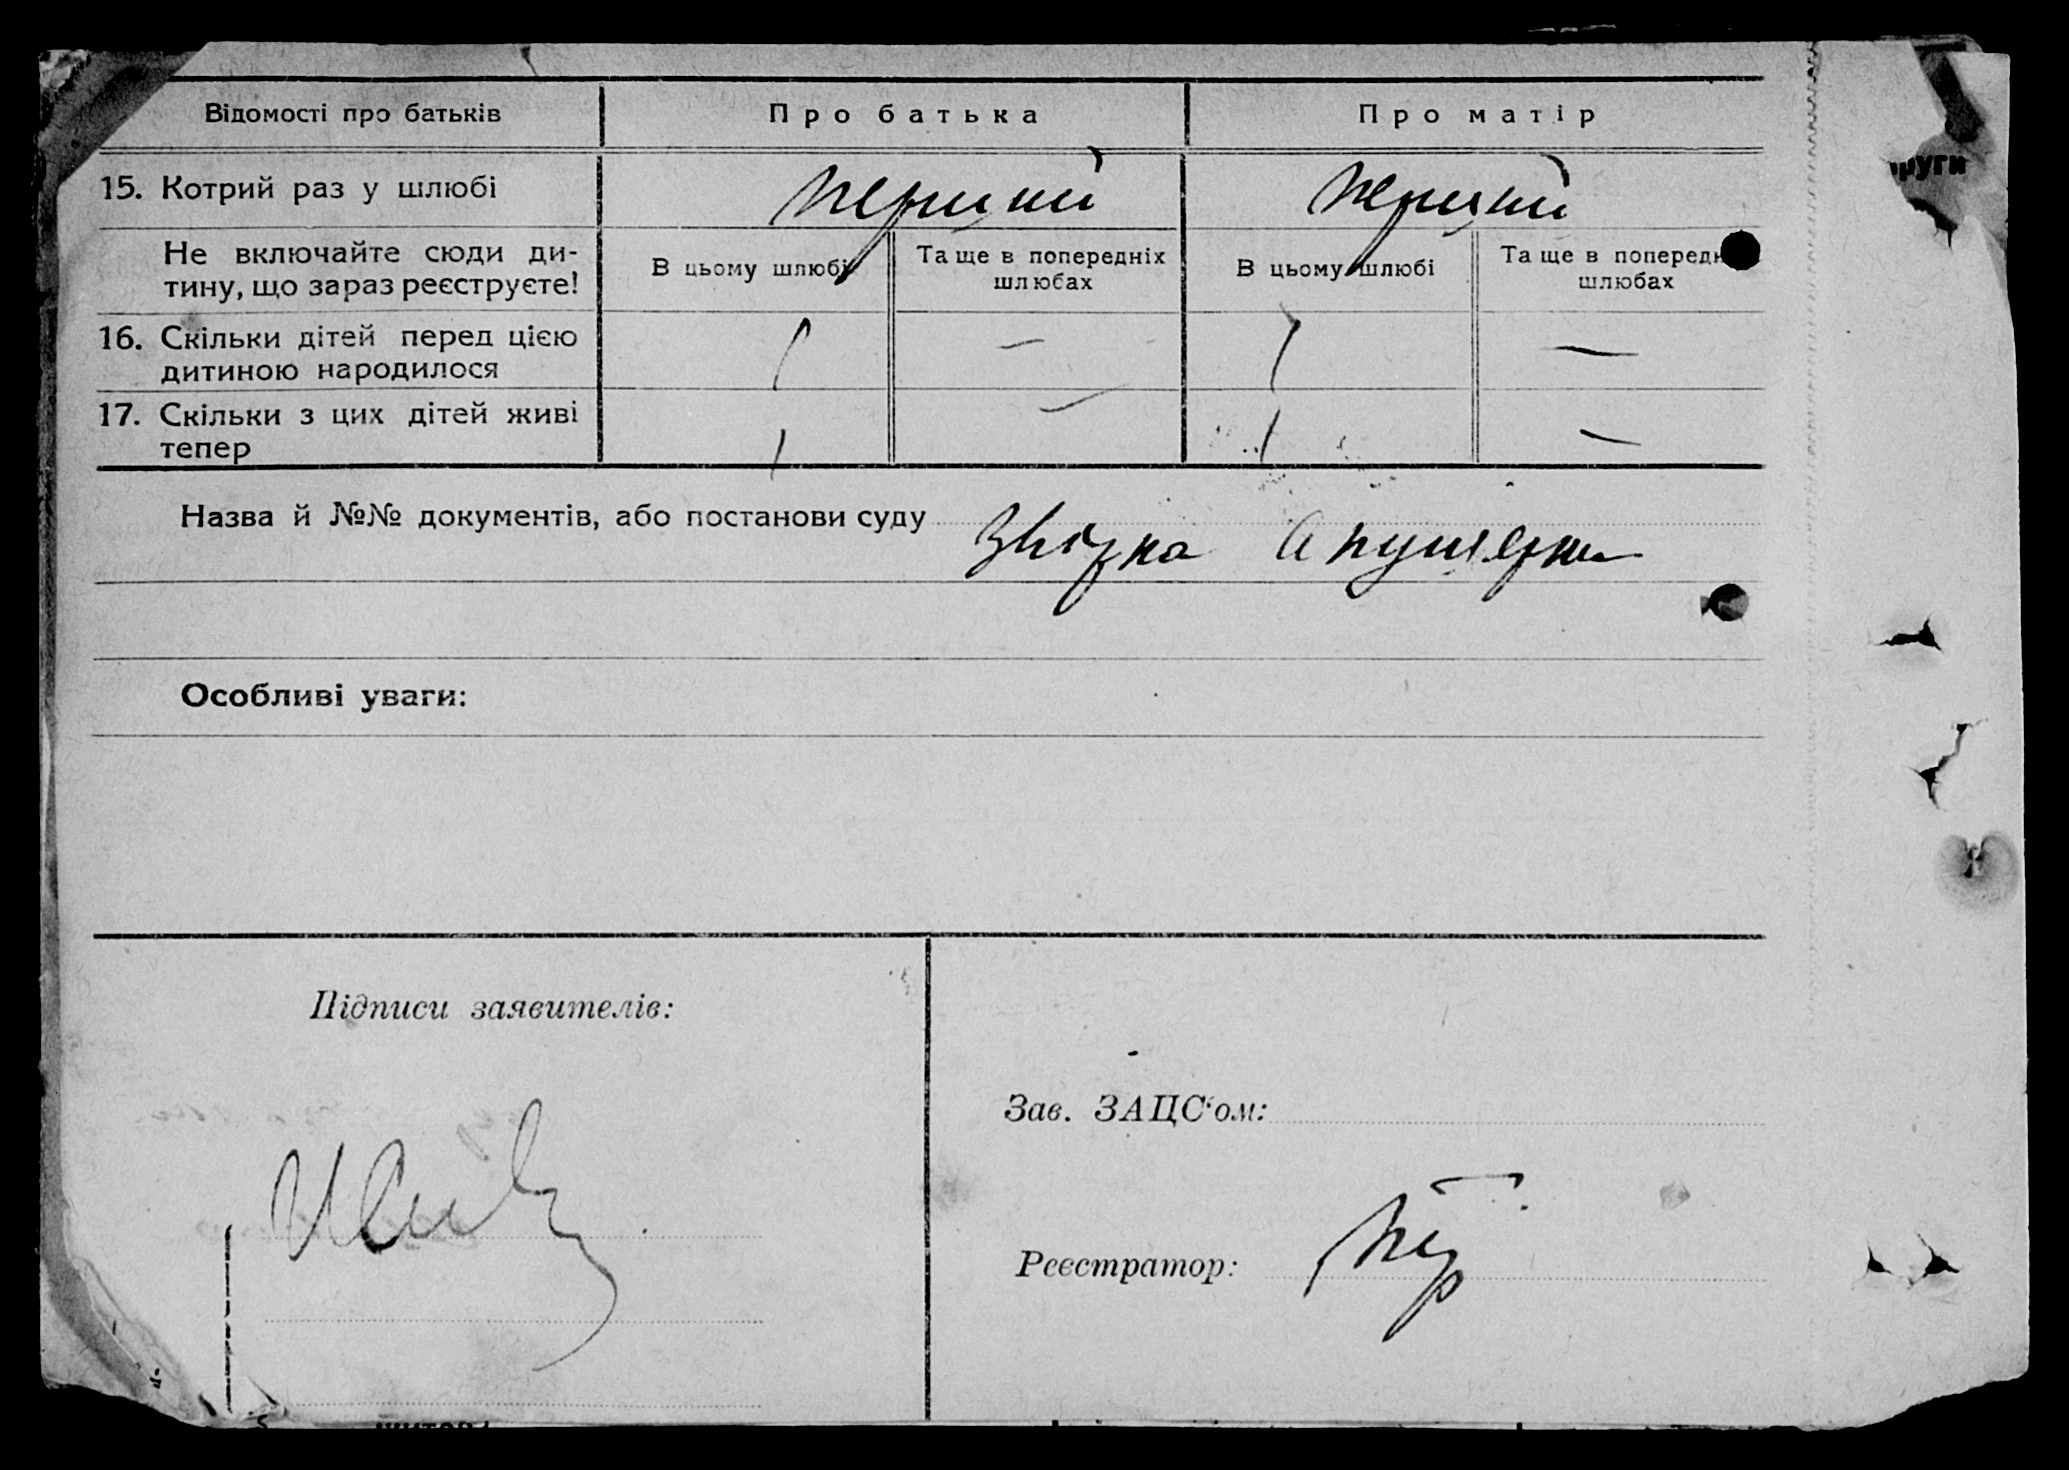 Відомості про батьків
Про батька
Про матір
15. Котрий раз у шлюбі
перший
перший
Не включайте сюди ди-
тину, що зараз реєструєте!
В цьому шлюбі
Та ще в попередніх
шлюбах
В цьому шлюбі
Та ще в попередн
шлюбах
16. Скільки дітей перед цією
дитиною народилося
1
—
1
—
17. Скільки з цих дітей живі
тепер
1
—
1
—
Назва й №№ документів, або постанови суду
Звідка Акушерки
Особливі уваги:
Підписи заявителів:
Зав. ЗАЦС'ом:
Реєстратор: